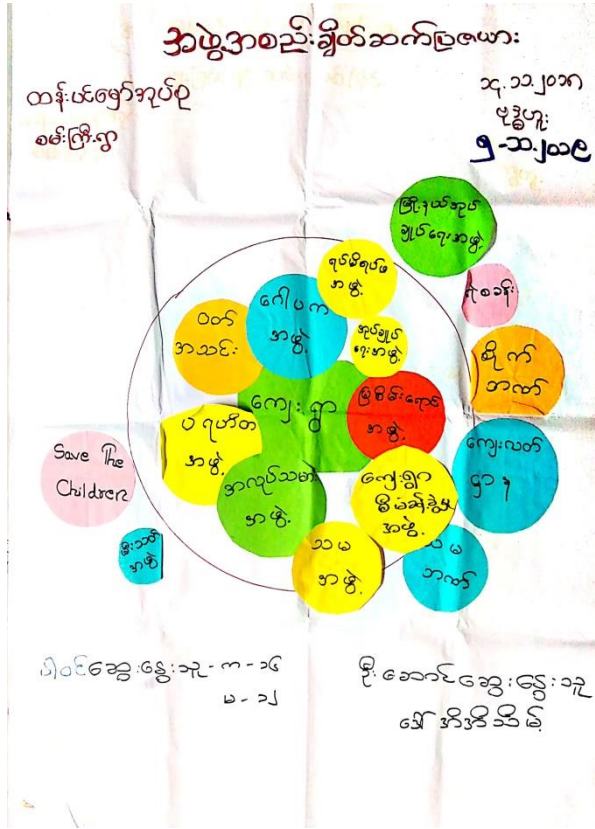 အဖွဲ့အစည်းချိတ်ဆက်ပြဇယား
ထန်းပင်မှော်အုပ်စု
စမ်းကြီးရွာ
၁၄.၁၁.၂၀၁၈
ဗုဒ္ဓဟူး
မြို့နယ်အုပ်
ချုပ်ရေးအဖွဲ့
ရပ်မိရပ်ဖ
အဖွဲ့
ရဲစခန်း
ဂေါပက
အဖွဲ့
ဝတ်
အသင်း
အုပ်ချုပ်
ရေးအဖွဲ့
စိုက်
ဘဏ်
ကျေးရွာ
မြစိမ်းရောင်
အဖွဲ့
ပရဟိတ
အဖွဲ့
ကျေးလက်
ဌာန
Save The
Children
အလုပ်သမား
အဖွဲ့
ကျေးရွာ
စီမံခန့်ခွဲမှု
အဖွဲ့
မီးသတ်
အဖွဲ့
သမ
အဖွဲ့
သမ
ဘဏ်
ပါဝင်ဆွေးနွေးသူ - က - ၁၆
မ - ၁၂
ဦးဆောင်ဆွေးနွေးသူ
ဒေါ်အိအိသိမ့်